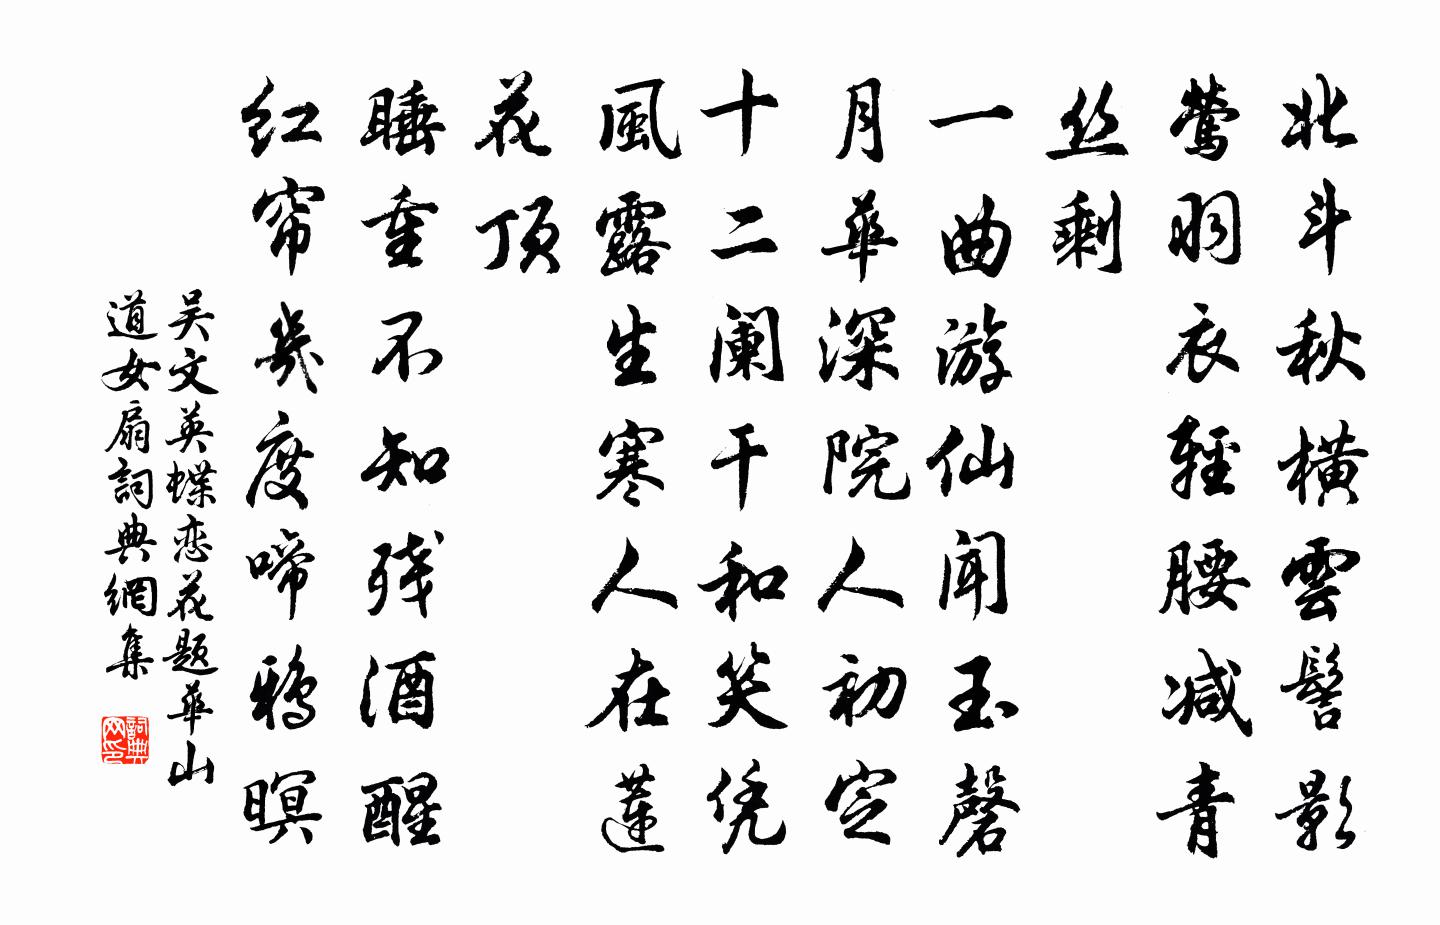 北斗秋橫雲髻影
鶯羽衣輕腰减青
丝剩
一曲游仙闻玉磬
月華深院人初定
十二阑干和笑凭
風露生寒人在蓮
花顶
睡重不知残酒醒
红帘幾度啼鴉暝
吴文英蝶恋花题華山
道女扇詞典網集
詞典
网印